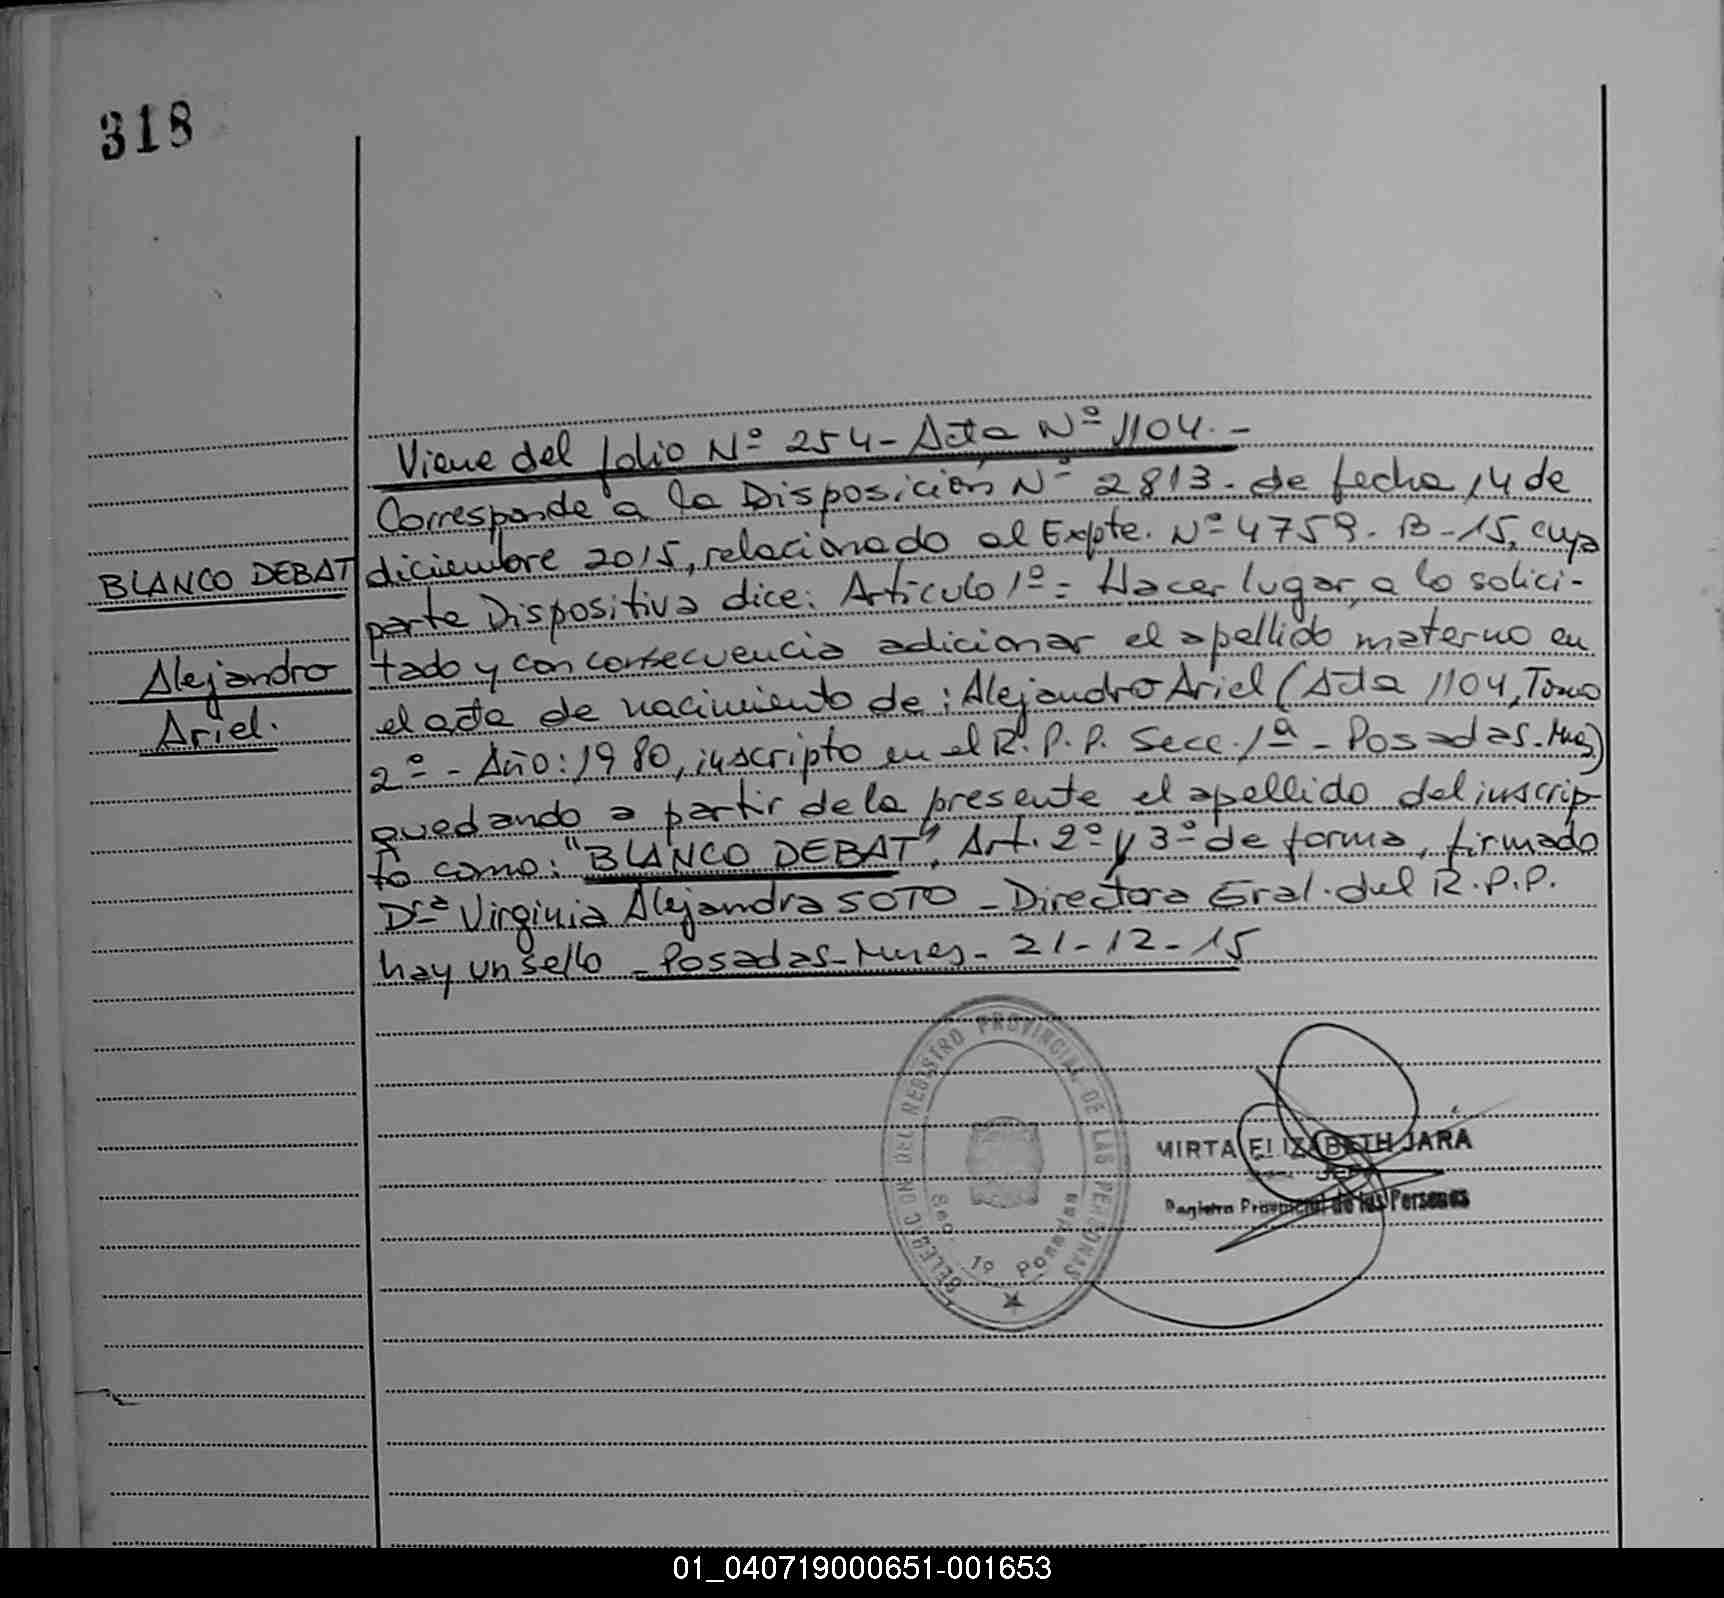 318
Viene del folio Nº 254 - Acta Nº 1104. -
Corresponde a la Disposición Nº 2813 - de fecha 14 de
diciembre 2015, relacionado al Expte. Nº 4759 - B - 15, cuya
parte Dispositiva dice: Artículo 1º = Hacer lugar, a lo solici-
tado y con consecuencia adicionar el apellido materno en
el acta de nacimiento de: Alejandro Ariel (Acta 1104, Tomo
2º - Año: 1980, inscripto en el R.P.P. Secc. 1ª - Posadas - Mnes)
quedando a partir de la presente el apellido del inscrip-
to como: "BLANCO DEBAT", Art. 2º y 3º de forma, firmado
Drª Virginia Alejandra SOTO - Directora Gral. del R.P.P.
hay un sello - Posadas - Mnes - 21-12-15
BLANCO DEBAT
Alejandro
Ariel.
DELEGACION DEL REGISTRO PROVINCIAL DE LAS PERSONAS
Sec. 1ª Posadas
MIRTA ELIZABETH JARA
JEFE
Registro Provincial de las Personas
01_040719000651-001653